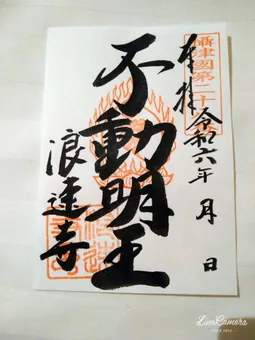 奉拝
攝津國第二十
令和六年 月 日
不動明王
浪速寺
LaceCamera